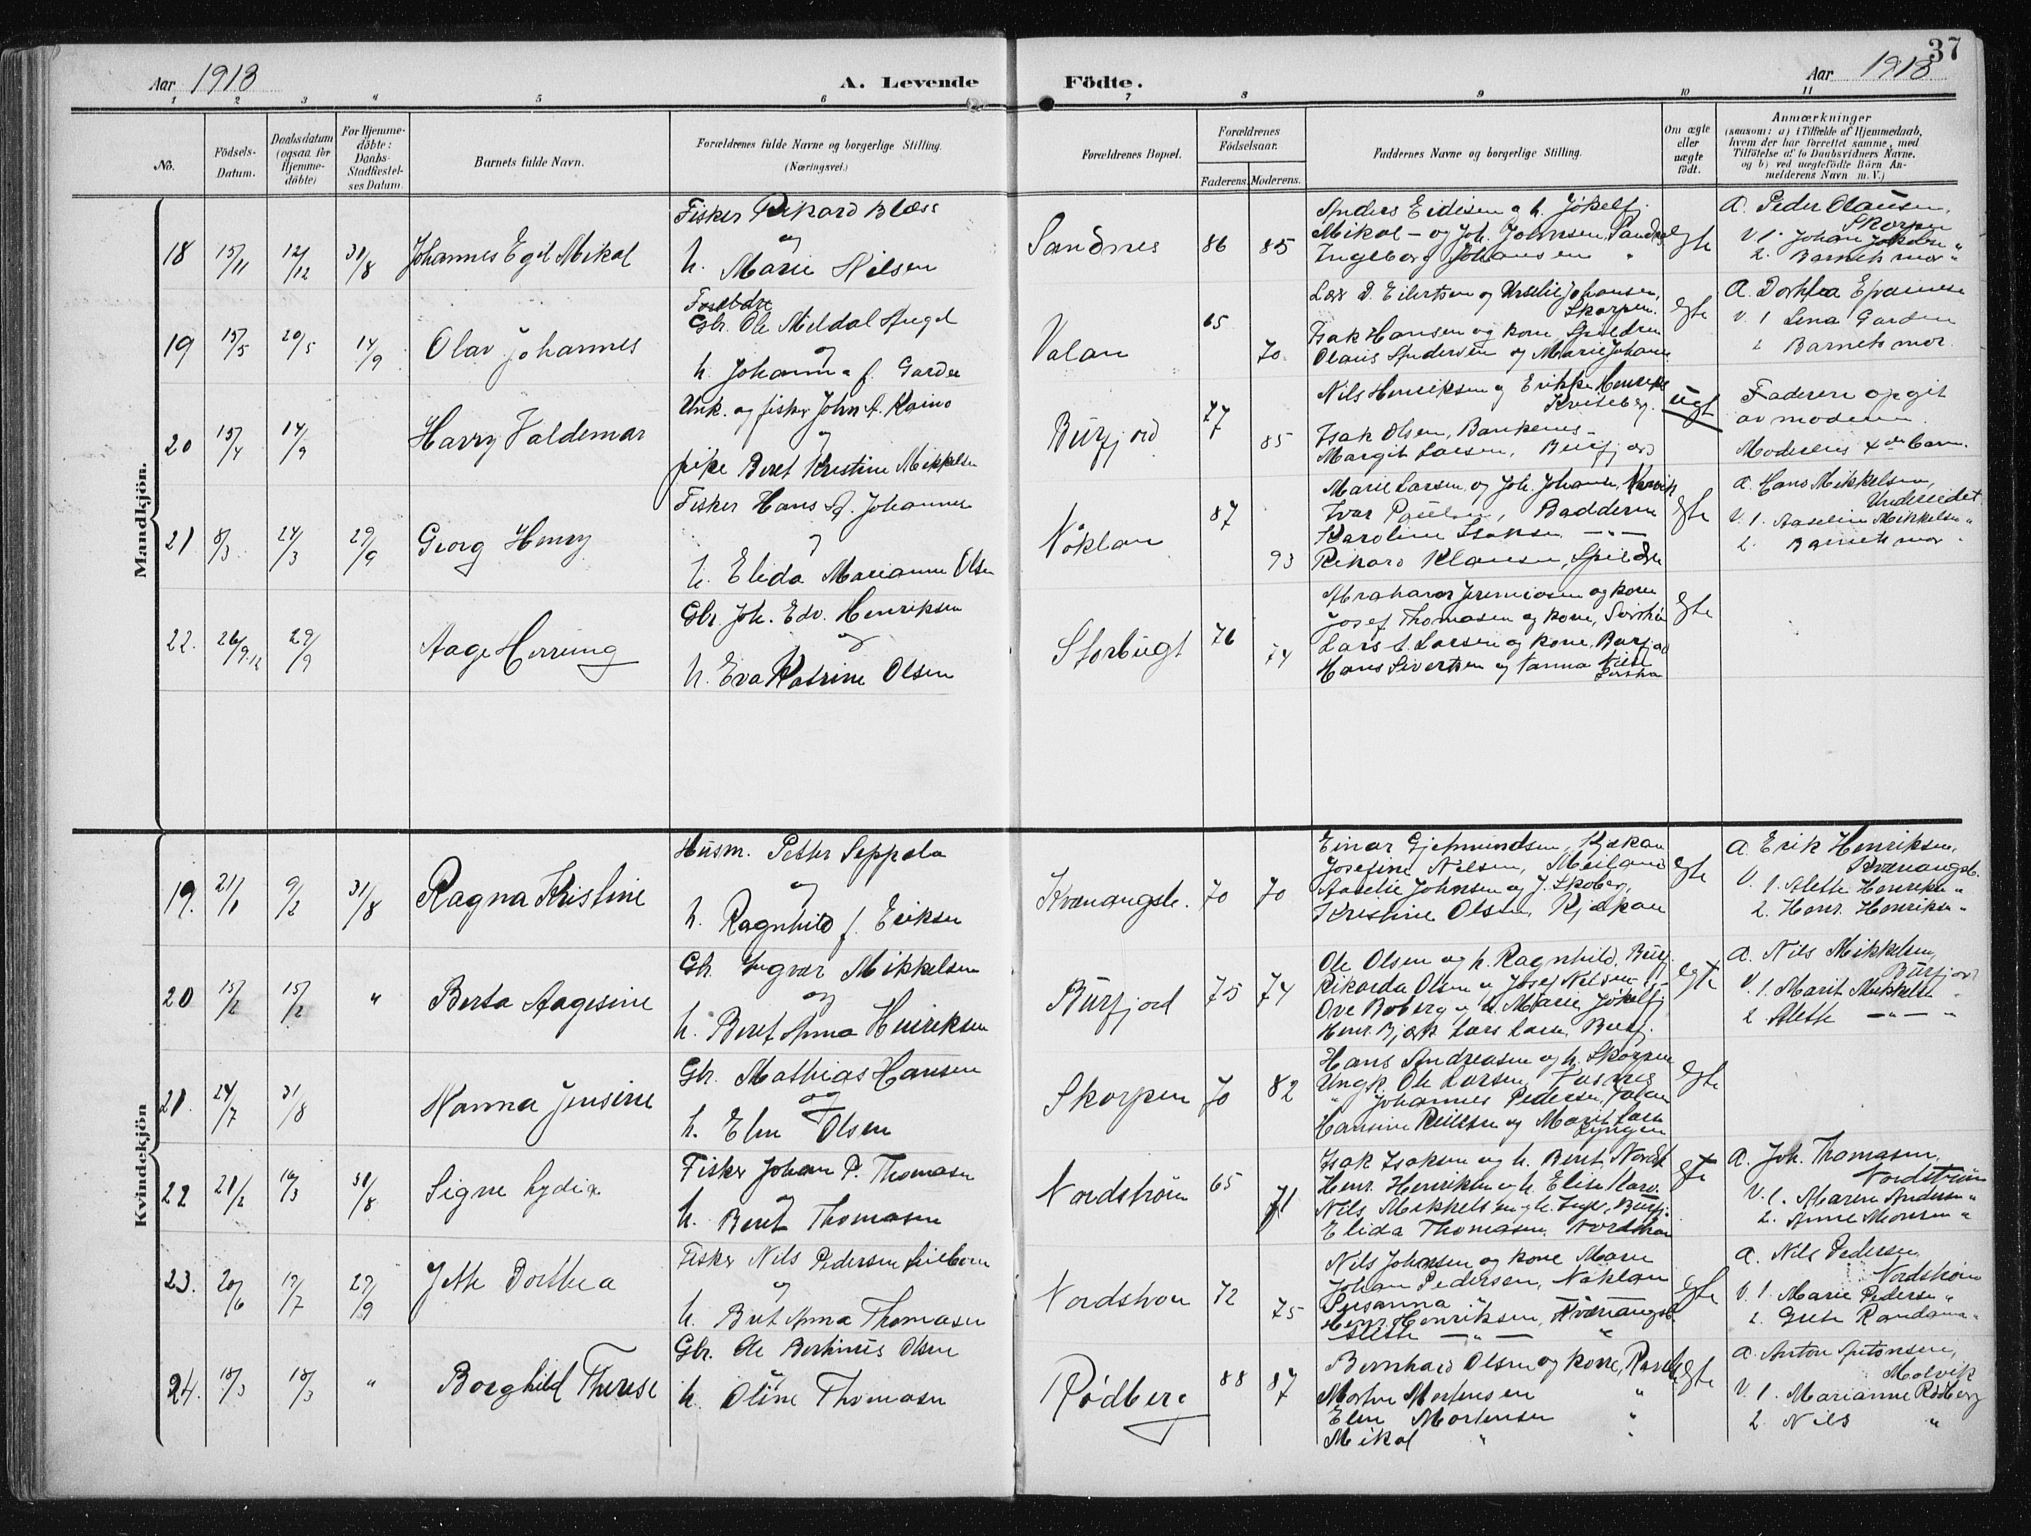 37
Aar 1913 A. Levende Födte. Aar 1913
1 2 3 4 5 6 7 8 9 10 11
No.
Födsels-
Datum.
Daabsdatum
(ogsaa for
Hjemme-
döbte)
For Hjemme-
döbte:
Daabs-
Stadfæstel-
ses Datum.
Barnets fulde Navn.
Forældrenes fulde Navne og borgerlige Stilling.
(Næringsvei.)
Forældrenes Bopæl.
Forældrenes
Födselsaar.
Faderens. Moderens.
Faddernes Navne og borgerlige Stilling.
Om ægte
eller
uægte
født.
Anmærkninger
(saasom: a) i Tilfælde af Hjemmedaab,
hvem der har forrettet samme, med
Tilföielse af to Daabsvidners Navne.
og b) ved uægtefödte Börn An-
melderens Navn m. V.)
Mandkjön.
18 15/11 12/12 31/8 Johannes Egil Mikal
Fisker Rikard Blæss
og
h. Marie Nilsen
Sandnes 86 85
Anders Eidisen og h. Jøkelfj.
Mikal - og Joh. Johnsen, Sandn
Ingeborg Johansen "
egte
A. Peder Olausen,
Skorpen
V. 1. Johan Jakobs "
2. Barnets mor "
19 15/5 20/5 14/9 Olav Johannes
Forældre
Gbr. Ole Meldal Angel
og
h. Johanna f. Garden
Valan 65 70
Lær D. Eilertsen og Ursilie Johansen,
Skorpen.
Isak Hansen og kone Spildren
Olaus Andersen og Marie Johann
egte
A. Dorthea
V. 1 Lena Garden
2 Barnets mor.
20 15/4 14/9 Harry Valdemar
Unk. og fisker John A. Kaino
og
pike Beret Kristine Mikkelsen
Burfjord 77 85
Nils Henriksen og Erikke Henriks
Isak Olsen, Bankenes -
Margit Larsen, Burfjord
uegt
Faderen opgit
av moderen
Moderens 4de barn.
21 8/3 24/3 29/9 Georg Henry
Fisker Hans A. Johannes
og
h. Elida Marianne Olsen
Nøklan 87 93
Marie Larsen og Joh. Johans
Ivar Paulsen, Badderen
Karoline Isaksen - " -
Rikard Klausen, Spildra
egte
A. Hans Mikkelsen,
Undereidet
V. 1. Aaseline Mikkelsen "
2. Barnets mor "
22. 26/9.12 29/9 Aage Henning
Gbr Joh. Edv. Henriksen
og
h. Eva Katrine Olsen
Storbugt 76 74
Abraham Jeremiasen og kone
Josef Thomasen og kone,
Lars L. Larsen og kone, Burfjord
Hans Sivertsen og
egte
Kvindekjön
19. 21/1 9/2 31/8 Ragna Kristine
Husm. Petter Seppala
og
h. Ragnhild f. Eriksen
Kvænangsb. 70 70
Einar Gjetmundsen, Kjækan
Josefine Nilsen, Meiland
Aaselie Johnsen og J. Skoberg,
Kristine Olsen, Kjækan
egte
A. Erik Henriksen,
Kvænangsb.
V. 1. Alette Henriksn "
2. Henr. Henriksn "
20 15/2 15/2 " Berta Aagesine
Gb. Ingvær Mikkelsen
og
h. Beret Anna Henriksen
Burfjord 75 74
Ole Olsen og h. Ragnhild, Burfj.
Rikarda Olsen og Josef Nilsen - " -
Ove Boberg og h. Marie, Jøkelfj
Henr. Bjørk Lars Larsen Burfj.
egte
A. Nils Mikkelsen,
Burfjord
V. 1. Marit Mikkelse "
2. Alette - " - "
21. 24/7 31/8 Hanna Jensine
Gb. Mathias Hansen
og
h. Elen Olsen
Skorpen 70 82
Hans Andreasen og h. Skorpen
Ungk. Ole Larsen,
" Johannes Pedersen, Valan
Hansine Nilssen og Marit Larsen
Lyngen
egte
22 21/2 16/3 31/8 Signe Lydia
Fisker Johan P. Thomasen
og
h. Beret Thomasen
Nordstrøm 65 71
Isak Isaksen og h. Beret, Nordst
Henr. Henriksen og h. Elise
Nils Mikkelsen og h. Inge, Burfj.
Elida Thomasen, Nordstrøm
egte
A. Joh. Thomasen,
Nordstrøm
V. 1. Maren Andersen "
2. Anne Monsen "
23. 20/6 17/7 29/9 Jette Dorthea
Fisker Nils Pedersen
og
h. Beret Anna Thomasen
Nordstrøm 72 75
Nils Johansen og kone Maren
Johan Pedersen, Nøklan
Susanna " "
Henr. Henriksen, Kvænangsb.
Alette - " - "
egte
A. Nils Pedersen
Nordstrøm
V. 1. Marie Pederse "
2. Grete "
24. 15/3 18/3 " Borghild Therese
Gbr. Ole Bertinus Olsen
og
h. Oline Thomasen
Rødberg 88 87
Bernhard Olsen og kone,
Morten Mortensen "
Elen Mortensen "
Mikal " "
egte
A. Anton Antonsen,
Molvik
V. 1. Marianne Rødberg
2. Nils "